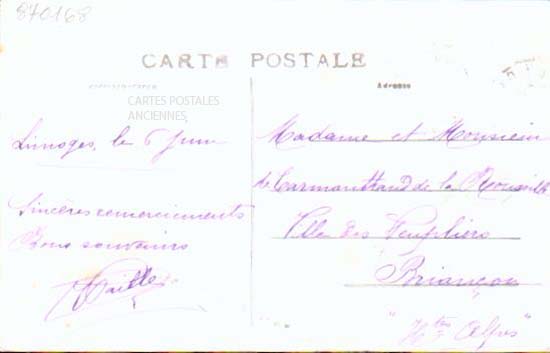 870168
CARTE POSTALE
Adresse
CARTES POSTALES
ANCIENNES
Limoges, le 6 Juin
Sincères remerciements
Bons souvenirs
Madame et Monsieur
de la
Villa des Peupliers
Briançon
"Htes Alpes"